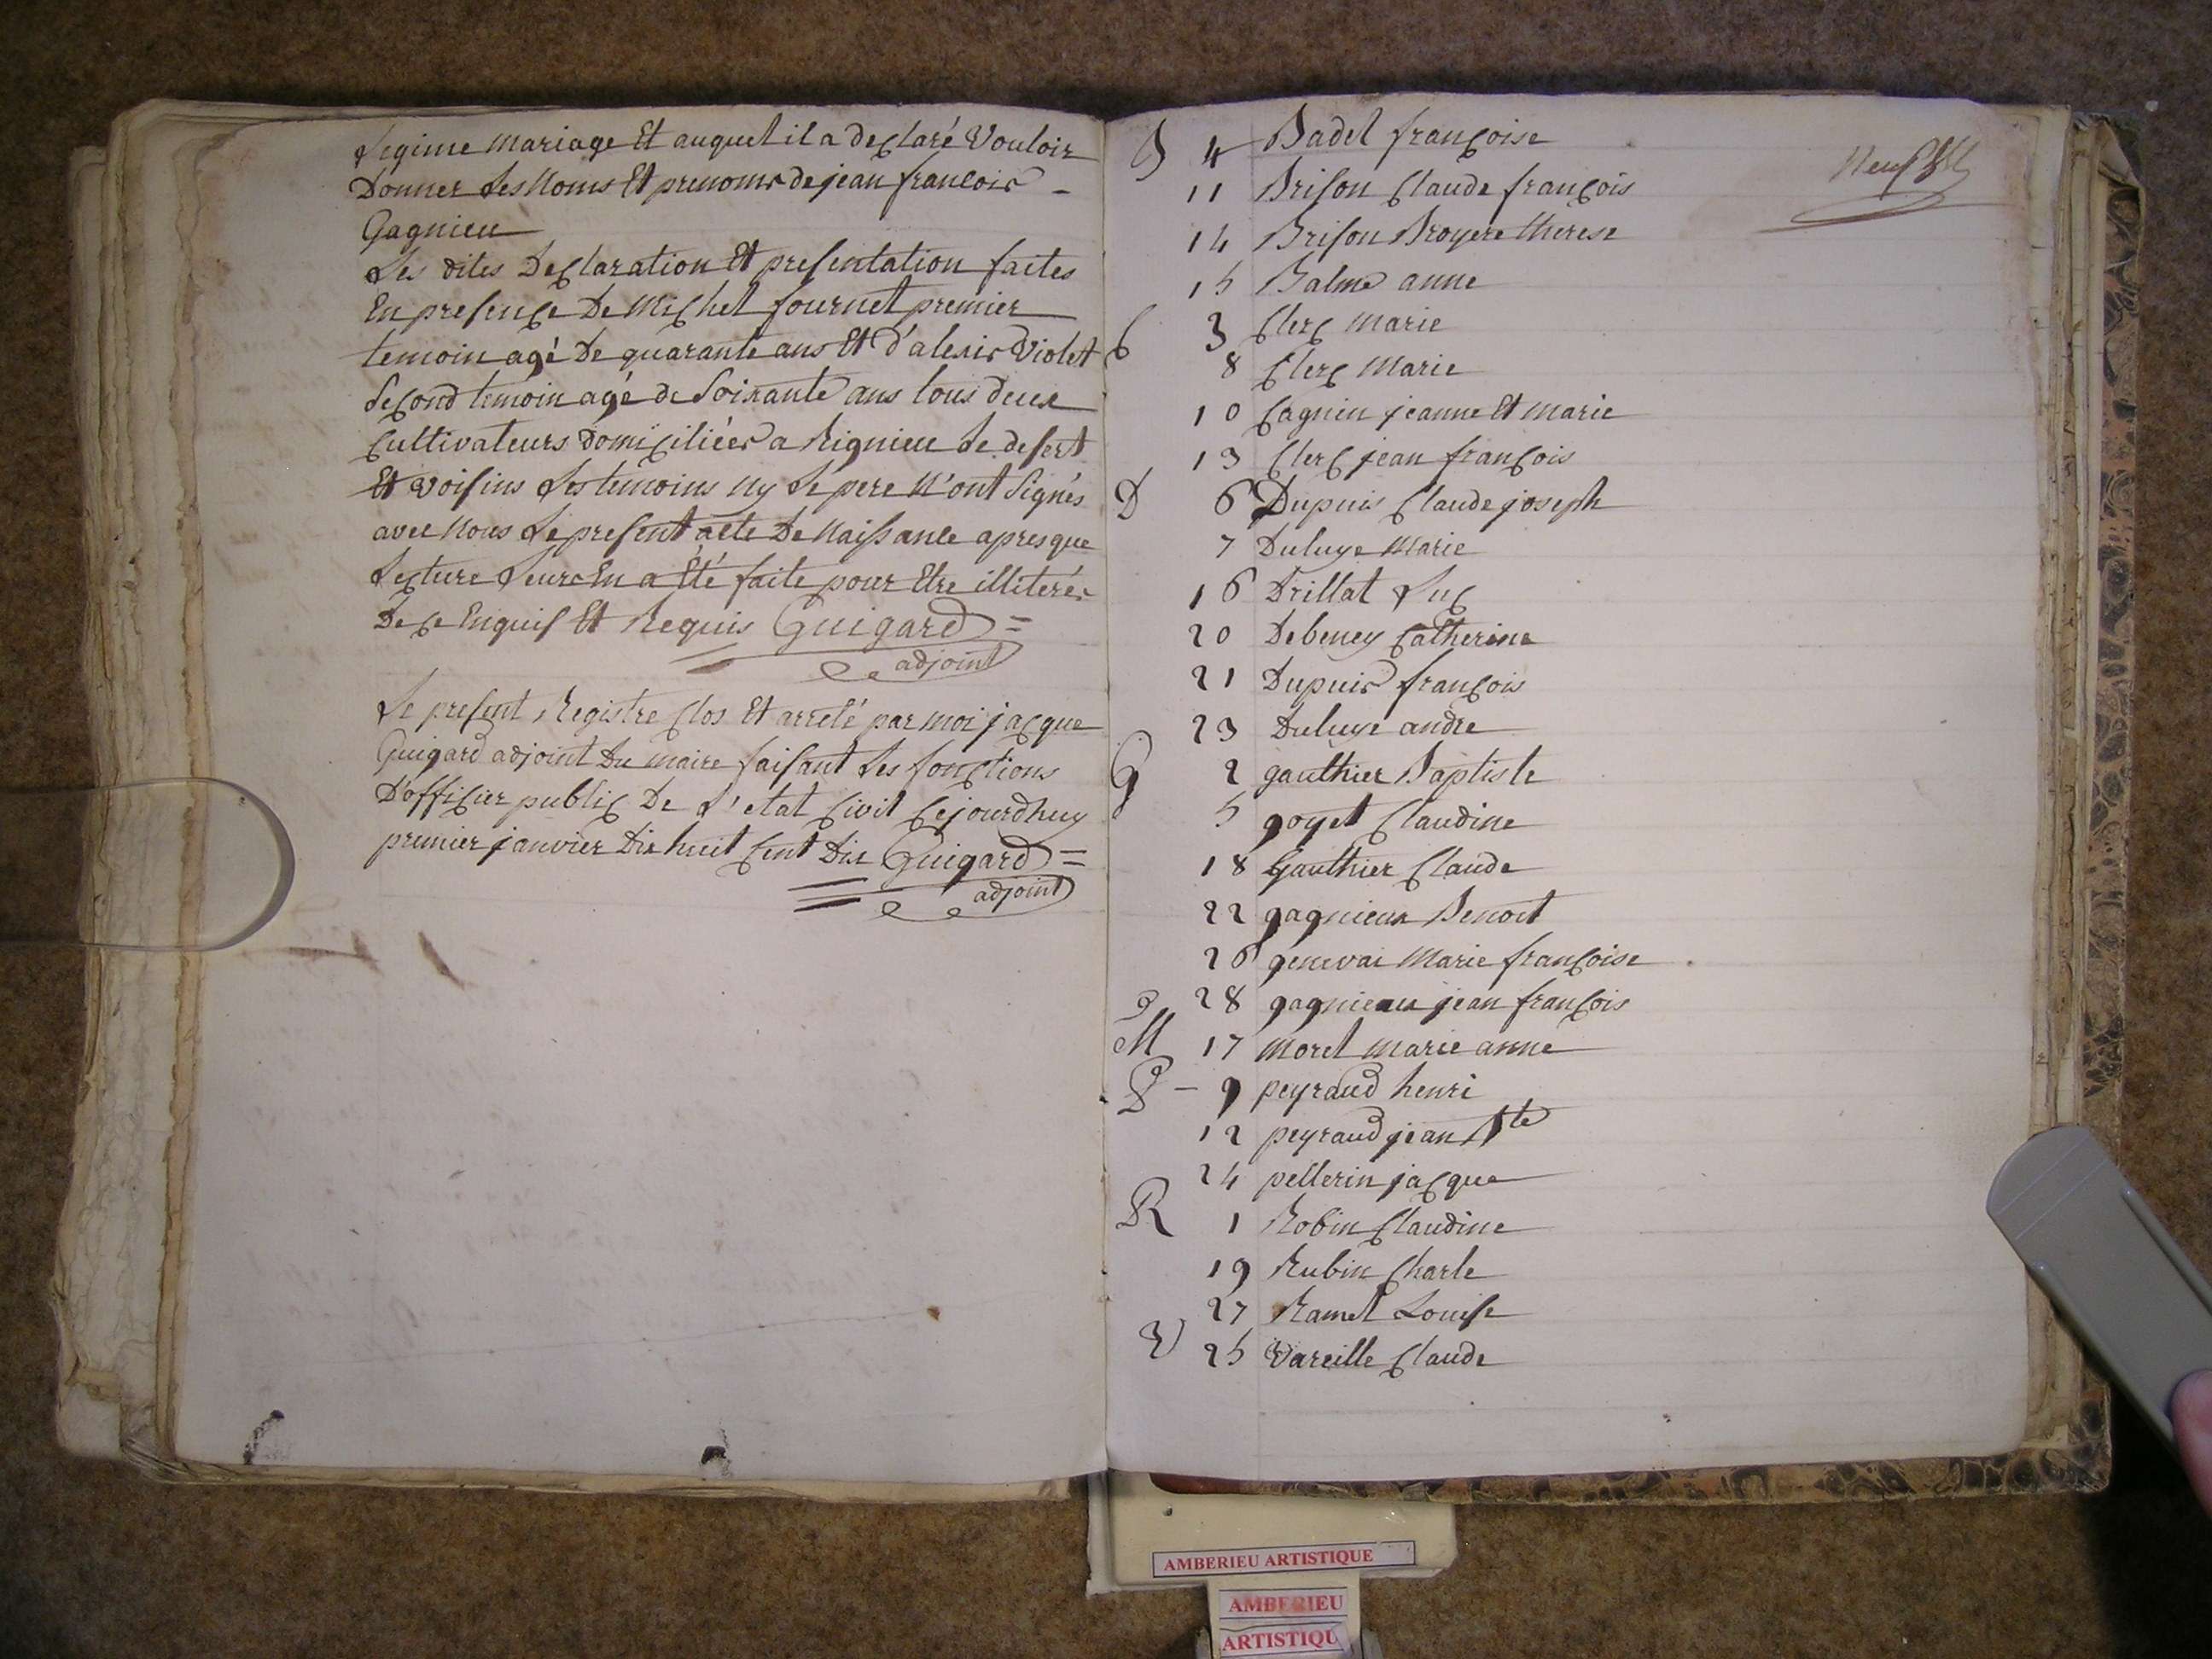 Legime mariage Et auquel il a declaré Vouloir
Donner Les Noms Et prenoms de jean francois -
Gagnieu
Les dites Declaration Et presentation faites
En presence De Michel fournet premier
temoin agé De quarante ans Et D'alexis Violet
Second temoin agé de Soixante ans tous deux
Cultivateurs Domiciliées a Rignieu Le desert
Et voisins Les temoins ny Le pere N'ont Signés
avec Nous Le present acte De Naissance apres que
Lecture Leurs En a Eté faite pour Etre illiterés
De ce Enquis Et Requis Guigard =
adjoint
Le present Registre Clos Et arrelé par moi jacque
Guigard adjoint Du maire faisant Les fonctions
D'officier public De L'etat Civil Cejourdhuy
premier janvier Dix huit Cent Dix Guigard =
adjoint
B 4 Badel françoise
11 Brison Claude françois
14 Brison Broyere therese
15 Balme anne
C 3 Clerc Marie
8 Clerc Marie
10 Cagnin jeanne Et marie
13 Clerc jean françois
D 6 Dupuis Claude joseph
7 Duluye Marie
16 Drillat Luc
20 Debeney Catherine
21 Dupuis françois
23 Duluye andre
G 2 gauthier Baptiste
5 goyet Claudine
18 Gauthier Claude
22 gagnieux Benoit
26 genevai Marie françoise
28 gagnieux jean françois
M 17 Morel marie anne
P - 9 peyraud henri
12 peyraud jean Bte
24 pellerin jacque
R 1 Robin Claudine
19 Rubin Charle
27 Ramel Louise
V 25 Vareille Claude
Neuf
AMBERIEU ARTISTIQUE
AMBERIEU
ARTISTIQU